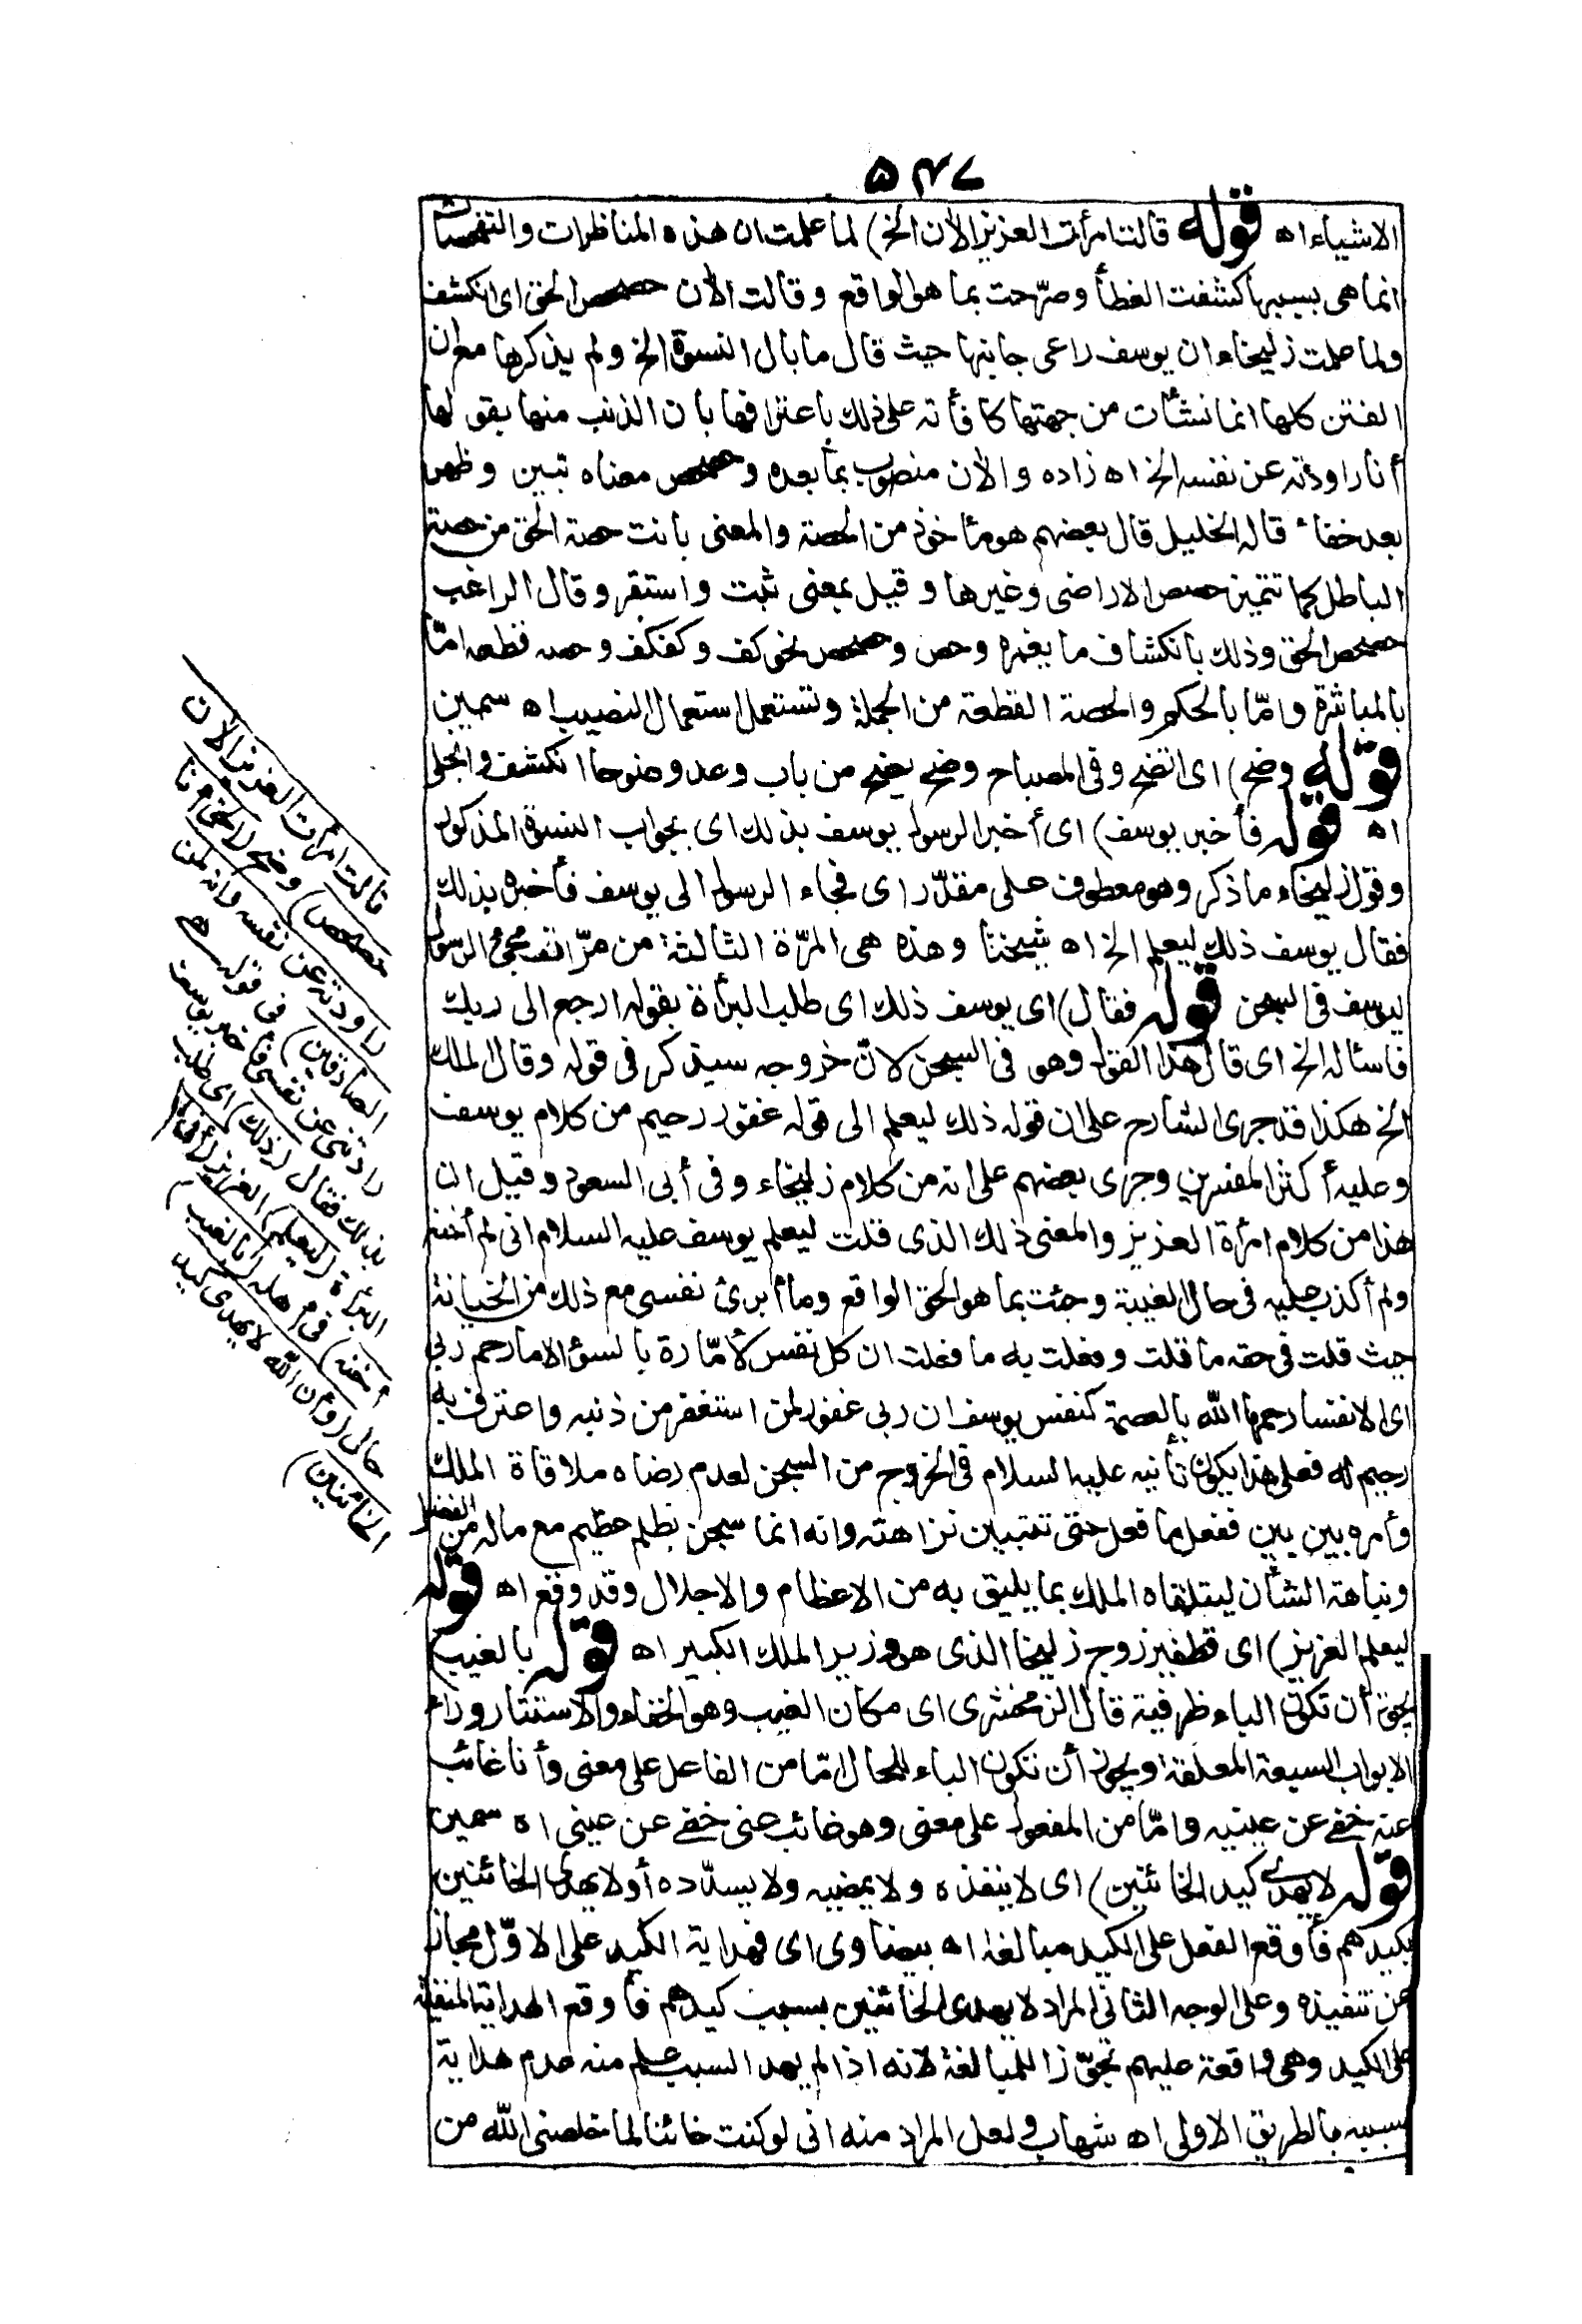 ۵۴۷
الاشياء اه قوله قالت امرأت العزيز الآن الخ) لما علمت ان هذه المناظرات والتفحصات
انما هى بسببها كشفت الغطأ وصرّحت بما هو الواقع وقالت الآن حصحص الحق اى انكشف
ولما علمت زليخاء ان يوسف راعى جانبها حيث قال ما بال النسوة الخ ولم يذكرها مع ان
الفتن كلها انما نشأت من جهتها كافأته على ذلك باعترافها بان الذنب منها بقولها
أنا راودته عن نفسه الخ اه زاده والآن منصوب بما بعده وحصحص معناه تبين وظهر
بعد خفاء قاله الخليل قال بعضهم هو مأخوذ من الحصة والمعنى بانت حصة الحق من حصة
الباطل كما تتميز حصص الاراضى وغيرها وقيل بمعنى ثبت واستقر وقال الراغب
حصحص الحق وذلك بانكشاف ما يغمره وحص وحصحص نحو كف وكفكف وحصه قطعه امّا
بالمباشرة وامّا بالحكم والحصة القطعة من الجملة وتستعمل استعمال النصيب اه سمين
قوله وضح) اى اتضح وفى المصباح وضح يضح من باب وعد وضوحا انكشف وانجلى
اه قوله فأخبر يوسف) اى أخبر الرسول يوسف بذلك اى بجواب النسوة المذكور
وقول زليخاء ما ذكر وهو معطوف على مقدّر اى فجاء الرسول الى يوسف فأخبره بذلك
فقال يوسف ذلك ليعلم الخ اه شيخنا وهذه هى المرّة الثالثة من مرّات مجئ الرسول
ليوسف فى السجن قوله فقال) اى يوسف ذلك اى طلب البرأة بقوله ارجع الى ربك
فاسئاله الخ اى قال هذا القول وهو فى السجن لانّ خروجه سيذكر فى قوله وقال الملك
الخ هكذا قد جرى الشارح على ان قوله ذلك ليعلم الى قوله غفور رحيم من كلام يوسف
وعليه أكثر المفسرين وجرى بعضهم على انه من كلام زليخاء وفى أبى السعود وقيل ان
هذا من كلام امرأة العزيز والمعنى ذلك الذى قلت ليعلم يوسف عليه السلام انى لم أخنه
ولم أكذب عليه فى حال الغيبة وجئت بما هو الحق الواقع وما أبرئ نفسى مع ذلك من الخيانة
حيث قلت فى حقه ما قلت وفعلت به ما فعلت ان كل نفس لأمّارة بالسؤ الا ما رحم ربى
اى الا نفسا رحمها الله بالعصمة كنفس يوسف ان ربى غفور لمن استغفر من ذنبه واعترف به
رحيم له فعلى هذا يكون تأنيه عليه السلام فى الخروج من السجن لعدم رضاه ملاقاة الملك
وأمره بين بين ففعل ما فعل حتى تتبين نزاهته وانه انما سجن بظلم عظيم مع ماله من الفضل
ونباهة الشأن ليتلقاه الملك بما يليق به من الاعظام والاجلال وقد وقع اه قوله
ليعلم العزيز) اى قطفير زوج زليخا الذى هو وزير الملك الكبير اه قوله بالغيب)
يجوز أن تكون الباء ظرفية قال الزمخشرى اى مكان الغيب وهو الخفاء والاستتار وراء
الابواب السبعة المغلقة ويجوز أن تكون الباء للحال امّا من الفاعل على معنى وأنا غائب
عنه خفى عن عينيه وامّا من المفعول على معنى وهو غائب عنى خفى عن عينى اه سمين
قوله لا يهدى كيد الخائنين) اى لا ينفذه ولا يمضيه ولا يسدّده أو لا يهدى الخائنين
بكيدهم فأوقع الفعل على الكيد مبالغة اه بيضاوى اى فهداية الكيد على الاوّل مجاز
عن تنفيذه وعلى الوجه الثانى المراد لا يهدى الخائنين بسبب كيدهم فأوقع الهداية المنفية
على الكيد وهى واقعة عليهم تجوّزا للمبالغة لانه اذا لم يهد السبب علم منه عدم هداية
سببه بالطريق الاولى اه شهاب ولعل المراد منه انى لو كنت خائنا لما خلصنى الله من
قالت امرأت العزيز الآن
حصحص) وضح (الحق أنا
راودته عن نفسه وانه لمن
الصادقين) فى قوله هى
راودتنى عن نفسى فأخبر يوسف
بذلك فقال (ذلك) اى طلب
البرأة (ليعلم) العزيز (أنى لم
أخنه) فى أهله (بالغيب)
حال (وأن الله لا يهدى كيد
الخائنين)